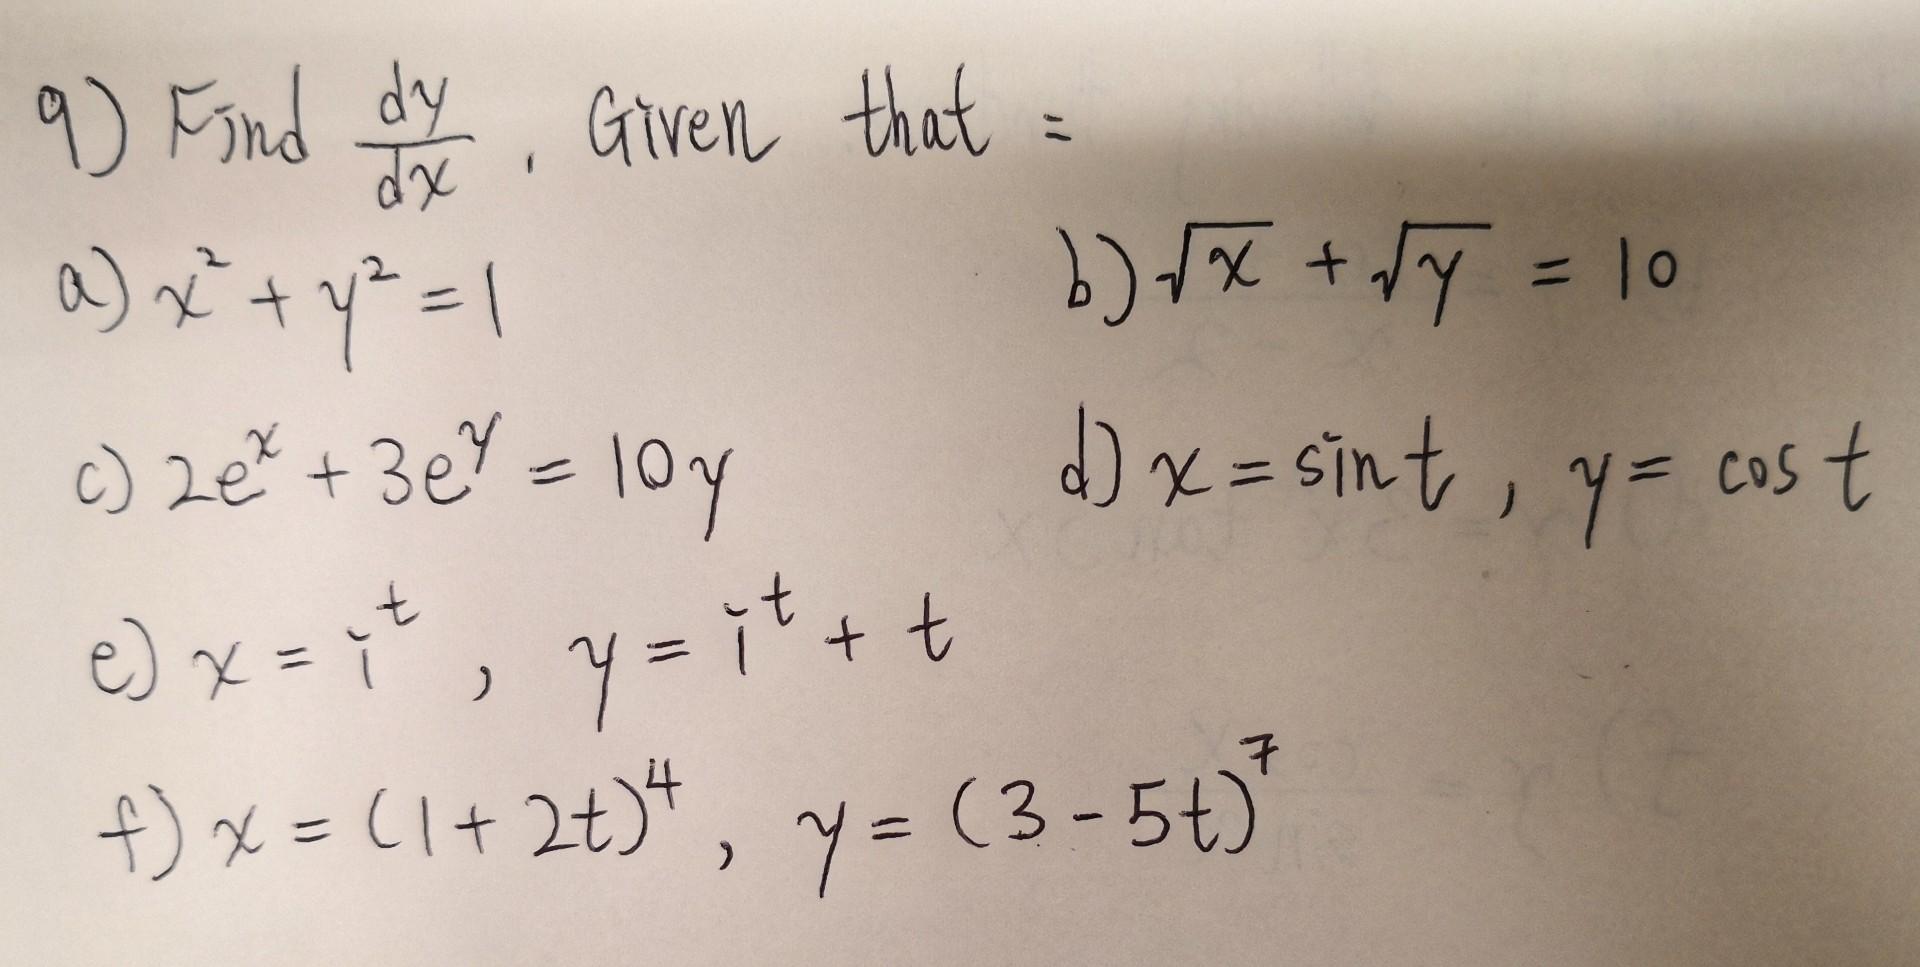 9) Find dy/dx, Given that =
a) x² + y² = 1
b) √x + √y = 10
c) 2eˣ + 3eʸ = 10y
d) x = sin t, y = cos t
e) x = iᵗ, y = iᵗ + t
f) x = (1 + 2t)⁴, y = (3 - 5t)⁷